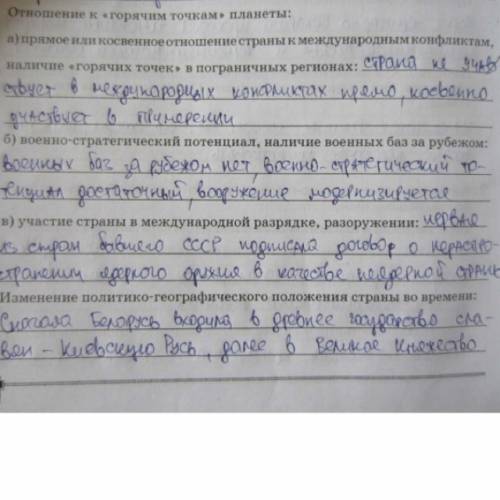 Отношение к «горячим точкам» планеты:
а) прямое или косвенное отношение страны к международным конфликтам,
наличие «горячих точек» в пограничных регионах: страна не участ
ствует в международных конфликтах прямо, косвенно
участвует в примерении
б) военно-стратегический потенциал, наличие военных баз за рубежом:
военных баз за рубежом нет, военно-стратегический по-
тенциал достаточный, вооружение модернизируется
в) участие страны в международной разрядке, разоружении: первая
из стран бывшего СССР подписала договор о нераспро-
странении ядерного оружия в качестве неядерной страны
Изменение политико-географического положения страны во времени:
Сначала Беларусь входила в древнее государство сла-
вян - Киевскую Русь, далее в Великое Княжество